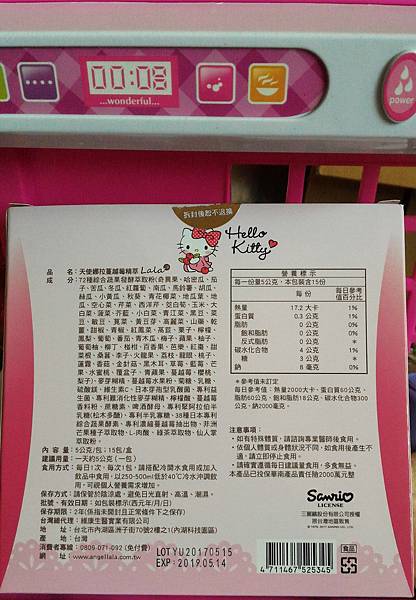 00:08
...wonderful...
power
拆封後恕不退換
Hello Kitty
品名：天使娜拉蔓越莓精萃 Lala
成分：72種綜合蔬果發酵萃取粉(奇異果、哈密瓜、茄
子、苦瓜、冬瓜、紅蘿蔔、南瓜、馬鈴薯、胡瓜、
絲瓜、小黃瓜、秋葵、青花椰菜、地瓜葉、地
瓜、空心菜、芥菜、西洋芹、茭白筍、玉米、大
白菜、菠菜、芥藍、小白菜、青江菜、黑豆、菜
豆、敏豆、蔥、黃豆芽、高麗菜、山藥、乾
薑、甜椒、青椒、紅鳳菜、萵苣、栗子、檸檬、
鳳梨、葡萄、番茄、青木瓜、梅子、蘋果、柚子、
葡萄柚、柳丁、桶柑、百香果、芭樂、紅棗、甜
菜根、桑葚、李子、火龍果、荔枝、龍眼、桃子、
蓮霧、香菇、金針菇、黑木耳、草莓、藍莓、芒
果、水蜜桃、覆盆子、青蘋果、蔓越莓、櫻桃、
梨仔)、麥芽糊精、蔓越莓水果粉、葡萄糖、乳糖、
硫酸鎂、維生素C、日本芽孢型乳酸菌、專利益
生菌、專利難消化性麥芽糊精、檸檬酸、蔓越莓
香料粉、蔗糖素、啤酒酵母、專利聚阿拉伯半
乳糖(松木多醣)、專利半乳寡糖、38種日本專利
綜合蔬果酵素、專利濃縮蔓越莓抽出物、非洲
芒果種子萃取物、L-肉酸、綠茶萃取物、仙人掌
萃取粉。
內容量：5公克/包；15包/盒
建議用量：一天約5公克(一包)
食用方式：每日1次，每次1包，請搭配冷開水食用或加入
飲品中食用，以250~500ml低於40℃冷水沖調飲
用，可視個人需要時求增加。
保存方式：請保管於陰涼處，避免日光直射、高溫、潮濕。
批號、有效日期：如包裝標示(西元年/月/日)
保存期限：2年(係指未開封且正常條件下之保存)
台灣總代理：維康生醫實業有限公司
地址：台北市內湖區洲子街70號2樓之1(內湖科技園區)
產地：台灣
消費者專線：0809-071-092 (免付費)
www.angellala.com.tw
LOT YU20170515
EXP :2019.05.14
營養標示
每一份量5公克，本包裝含15份
每份 每日參考值百分比
熱量 17.2 大卡 1%
蛋白質 0.3 公克 1%
脂肪 0 公克 0%
飽和脂肪 0 公克 0%
反式脂肪 0 公克 *
碳水化合物 4 公克 1%
糖 3 公克 *
鈉 8 毫克 0%
*參考值未訂定
每日參考值：熱量2000大卡、蛋白質60公克、
脂肪60公克、飽和脂肪18公克、碳水化合物300
公克、鈉2000毫克。
注意事項：
• 如有特殊體質，請諮詢專業醫師後食用。
• 依個人體質或身體狀況不同，如食用後產生不
適，請立即停止食用。
• 請確實遵循每日建議量食用，多食無益。
• 本產品已投保華南產險責任險2000萬元整
Sanrio
LICENSE
三麗鷗股份有限公司授權
限台灣地區販售
食品
4 711467 525345